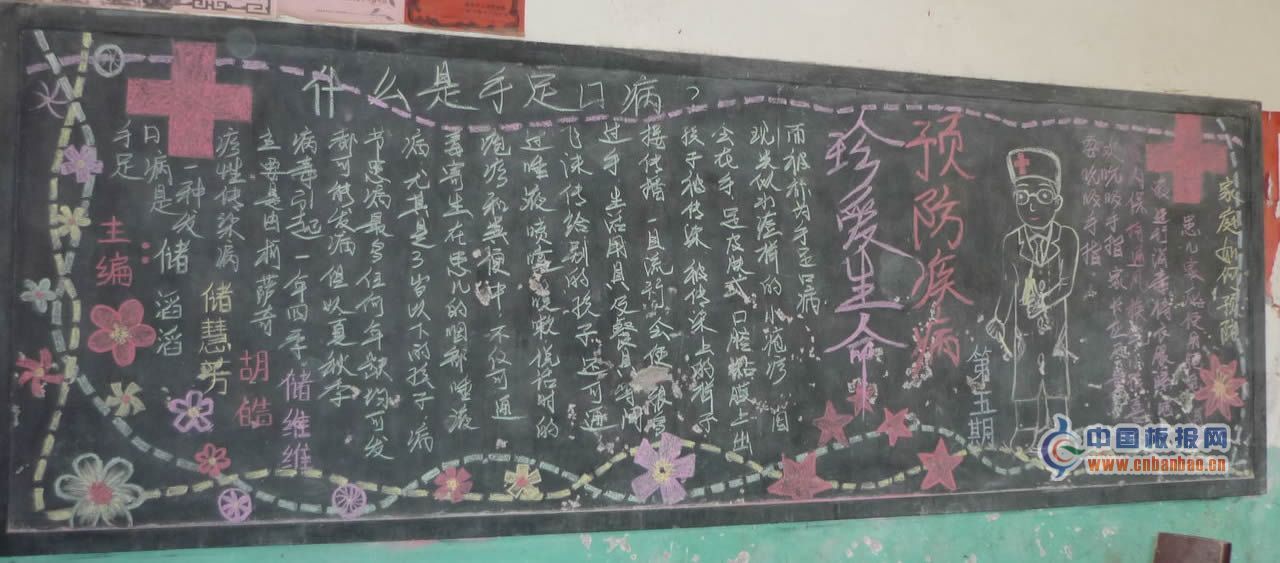 什么是手足口病?
手足
口病是
一种
疹性传染病
主要是由柯萨奇
病毒引起 一年四季
都可能发病 但以夏秋季
节患病最多 任何年龄均可发
病 尤其是3岁以下的孩子 病
毒寄生在患儿的咽部 唾液
疱疹和粪便中 不仅可通
过唾液喷嚏 咳嗽 说话时的
飞沫传给别的孩子 还可通
过手 生活用具及餐具等间
接传播 一旦流行 会使很多
孩子被传染 被传染上的孩子
会在手 足皮肤或口腔黏膜上出
现类似水痘样的小疱疹 因
而被称为手足口病
主编:
储滔滔
储慧芳
胡皓
储维维
珍爱生命
预防疾病
第五期
家庭如何预防
吮吸手指
中国板报网
www.cnbanbao.cn